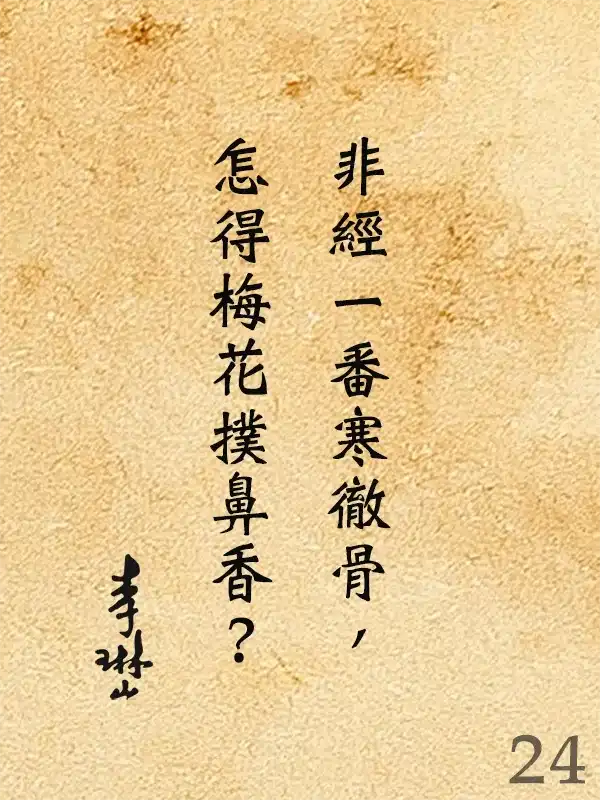 非經一番寒徹骨，
怎得梅花撲鼻香？
李琳山
24